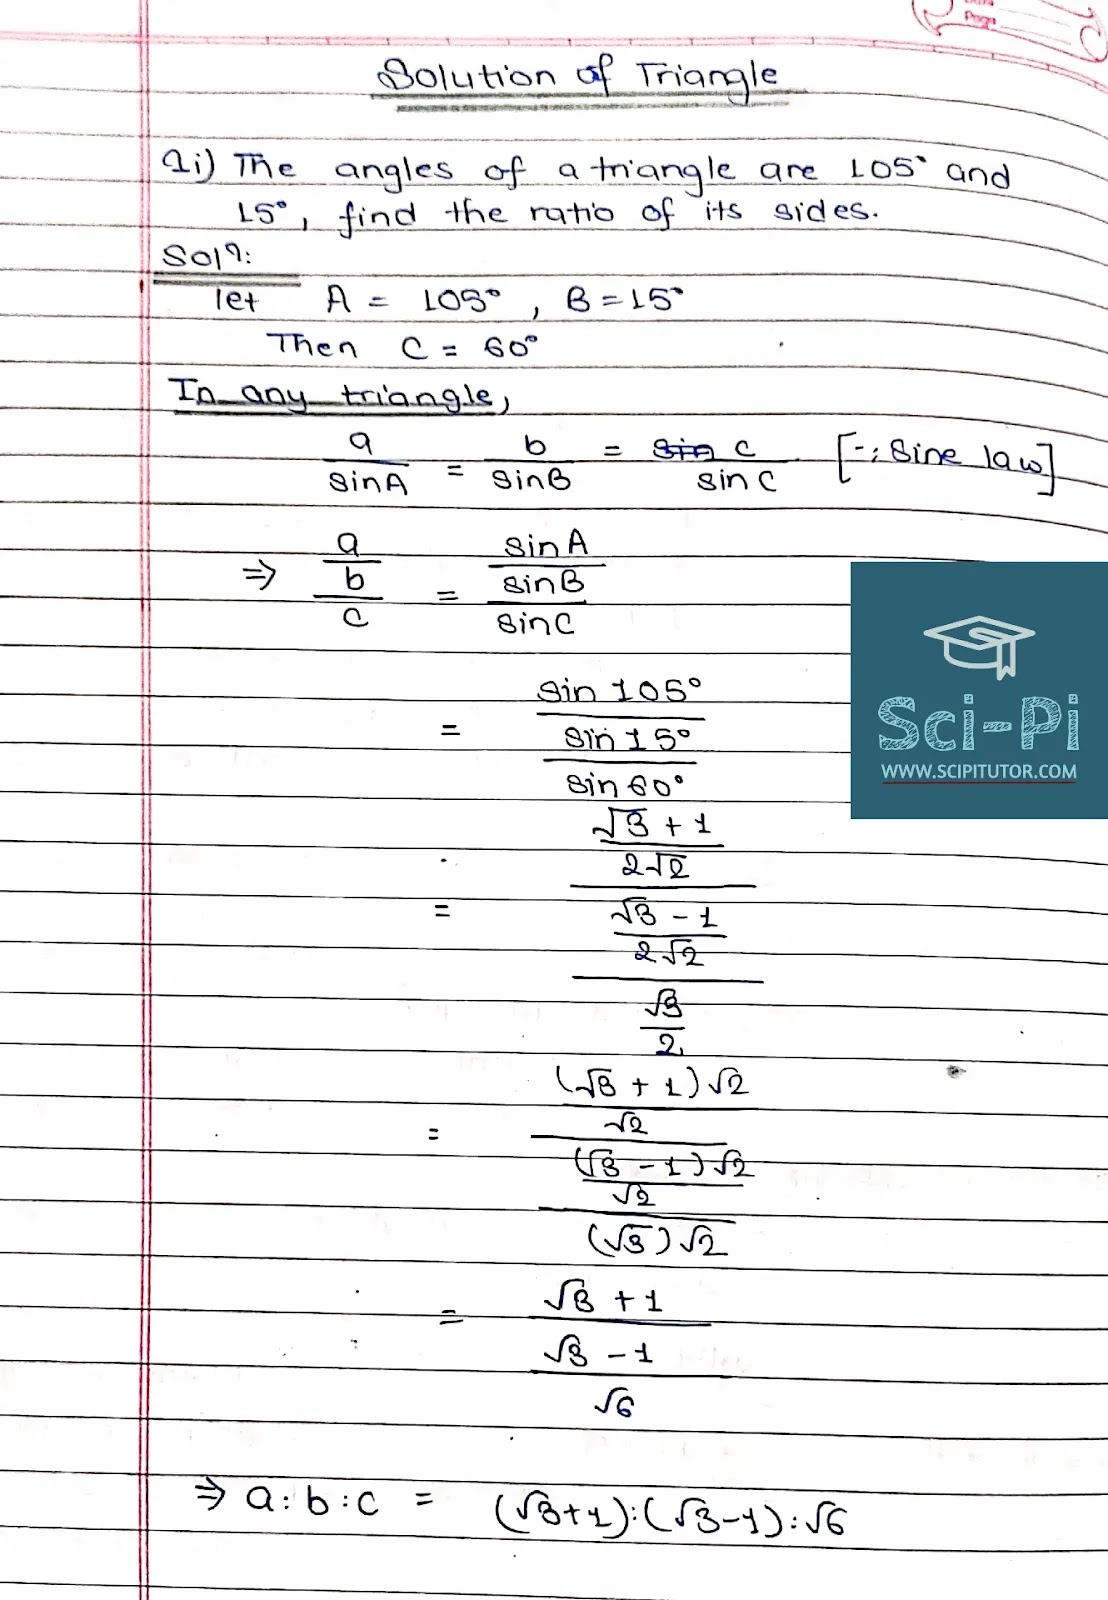 Page
Solution of Triangle
1i) The angles of a triangle are 105° and
15°, find the ratio of its sides.
Solⁿ:
let A = 105°, B = 15°
Then C = 60°
In any triangle,
a/sinA = b/sinB = sin c/sin C [∵ Sine law]
⇒ a/b/c = sin A/sin B/sin C
= sin 105°/sin 15°/sin 60°
= √3 + 1/2√2/√3 - 1/2√2/√3/2
= (√3 + 1)√2/√2/(√3 - 1)√2/√2/(√3)√2
= √3 + 1/√3 - 1/√6
⇒ a : b : c = (√3+1):(√3-1):√6
Sci-Pi
WWW.SCIPITUTOR.COM